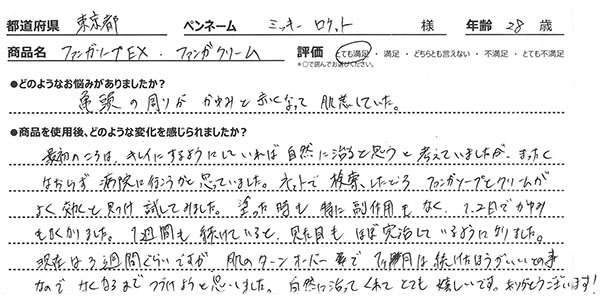 都道府県 東京都 ペンネーム ミッキーロケット 様 年齢 28 歳
商品名 ファンガソープEX・ファンガクリーム 評価 とても満足・満足・どちらとも言えない・不満足・とても不満足
*○で囲んでお選びください。
●どのようなお悩みがありましたか?
亀頭の周りがかゆみと赤くなって肌荒していた。
●商品を使用後、どのような変化を感じられましたか?
最初のころは、キレイにするようにしていれば自然に治ると思うと考えていましたが、まったく
なおらず病院に行こうかと思っていました。ネットで検索したところファンガソープとクリームが
よく効くと見つけ試してみました。塗った時も特に副作用もなく、1、2日でかゆみ
もなくなりました。1週間も続けていると、見た目もほぼ完治しているようになりました。
現在は3週間ぐらいですが肌のターンオーバー で 1ヶ月は続けたほうがいいとの事
なのでなくなるまでつづけようと思いました。自然に治ってくれてとても嬉しいです。ありがとうございます!